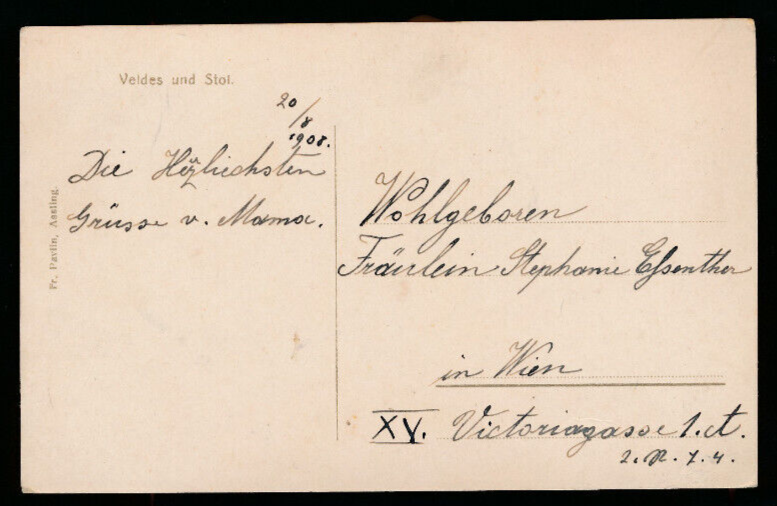 Veldes und Stol.
20/8
1908.
Die Herzliechsten
Grüsse v. Mama.
Fr. Pavlin, Assling.
Wohlgeboren
Fräulein Stephanie Essenther
in Wien
XV. Victoriagasse 1. A.
2. 7. 4.